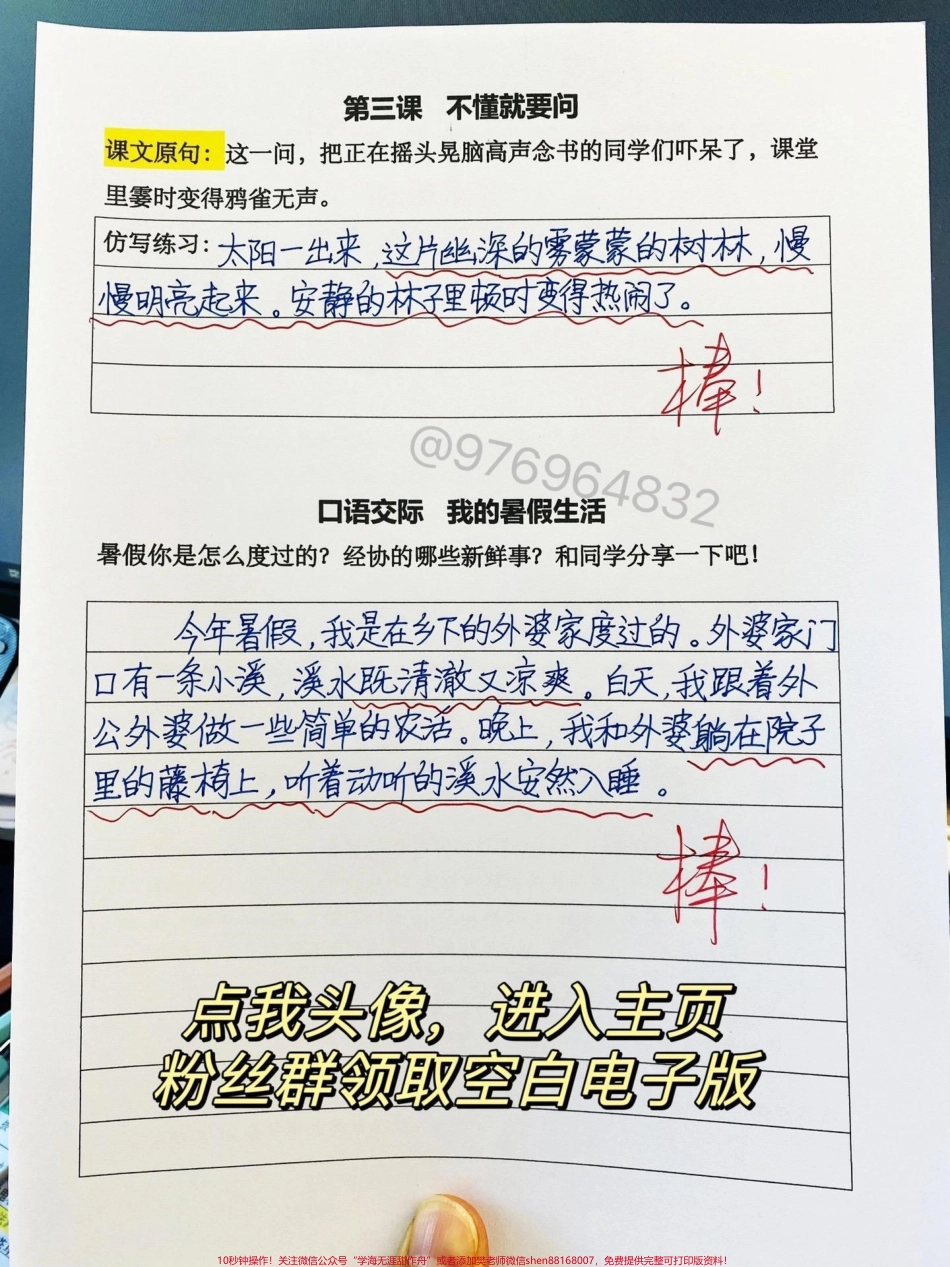 第三课 不懂就要问
课文原句：这一问，把正在摇头晃脑高声念书的同学们吓呆了，课堂
里霎时变得鸦雀无声。
仿写练习：太阳一出来，这片幽深的雾蒙蒙的树林，慢
慢明亮起来。安静的林子里顿时变得热闹了。
棒！
@976964832
口语交际 我的暑假生活
暑假你是怎么度过的？经协的哪些新鲜事？和同学分享一下吧！
今年暑假，我是在乡下的外婆家度过的。外婆家门
口有一条小溪，溪水既清澈又凉爽。白天，我跟着外
公外婆做一些简单的农活。晚上，我和外婆躺在院子
里的藤椅上，听着动听的溪水安然入睡。
棒！
点我头像，进入主页
粉丝群领取空白电子版
10秒钟操作！关注微信公众号“学海无涯甜作舟”或者添加樊老师微信shen88168007，免费提供完整可打印版资料！